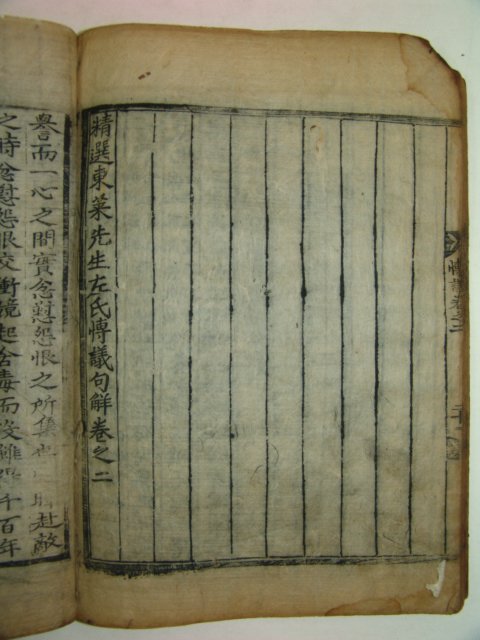 精選東萊先生左氏博議句解卷之二
譽而一心之間實忿懟怨恨之所集也
赴敵
之時忿懟怨恨交衝競起含毒而沒雖
千百年